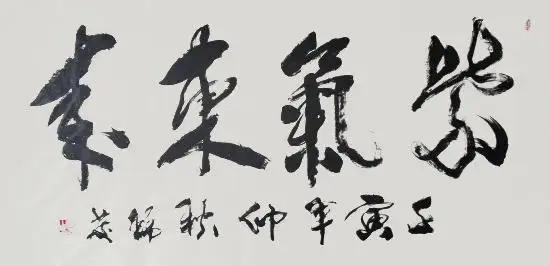 紫氣東來
壬寅年仲秋